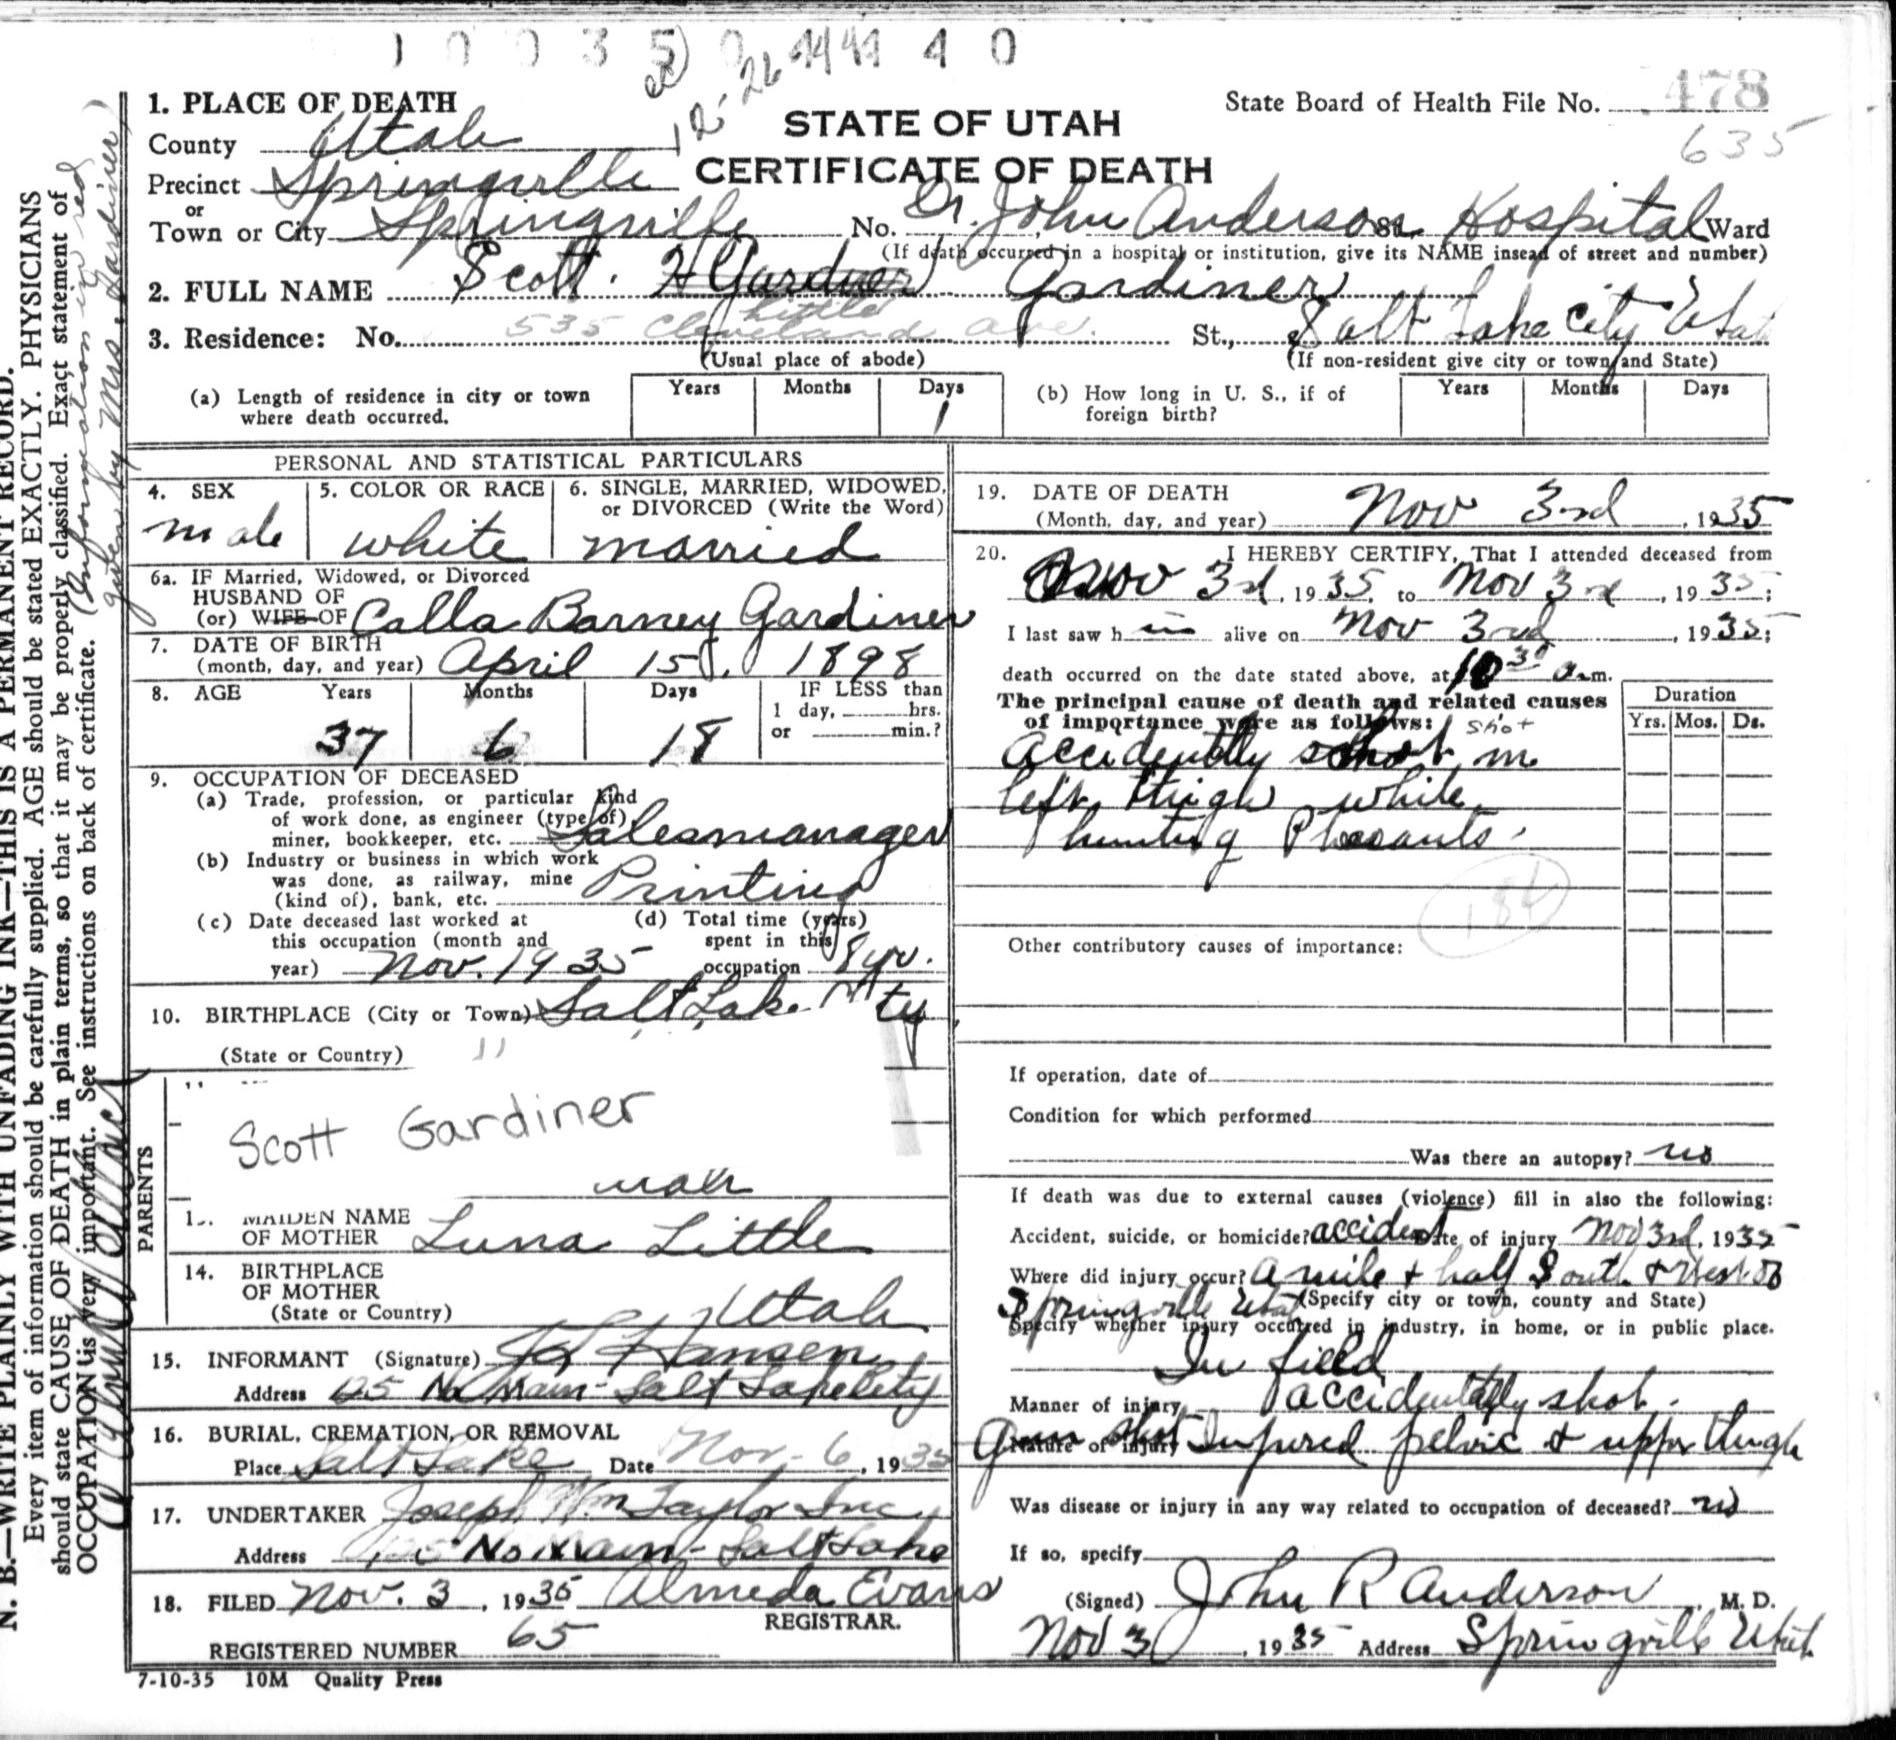 1 0 0 3 5 0 4 4 4 0
12-26
1. PLACE OF DEATH
State Board of Health File No. 478
635
STATE OF UTAH
CERTIFICATE OF DEATH
County Utah
Precinct Springville
or
Town or City Springville No. Dr. John Anderson St. Hospital Ward
(If death occurred in a hospital or institution, give its NAME insead of street and number)
2. FULL NAME Scott H Gardner Gardiner
Little
3. Residence: No. 535 Cleveland Ave. St., Salt Lake City Utah
(Usual place of abode) (If non-resident give city or town and State)
(a) Length of residence in city or town where death occurred. Years Months Days 1
(b) How long in U. S., if of foreign birth? Years Months Days
PERSONAL AND STATISTICAL PARTICULARS
4. SEX male
5. COLOR OR RACE white
6. SINGLE, MARRIED, WIDOWED, or DIVORCED (Write the Word) married
6a. IF Married, Widowed, or Divorced
HUSBAND OF
(or) WIFE OF Calla Barney Gardiner
7. DATE OF BIRTH
(month, day, and year) April 15, 1898
8. AGE Years 37 Months 6 Days 18
IF LESS than
1 day, hrs.
or min.?
9. OCCUPATION OF DECEASED
(a) Trade, profession, or particular kind
of work done, as engineer (type of)
miner, bookkeeper, etc. Salesmanager
(b) Industry or business in which work
was done, as railway, mine
(kind of), bank, etc. Printing
(c) Date deceased last worked at
this occupation (month and
year) Nov. 1935
(d) Total time (years)
spent in this
occupation 8 yr.
10. BIRTHPLACE (City or Town) Salt Lake City
(State or Country) "
PARENTS
Scott Gardiner
13. MAIDEN NAME
OF MOTHER Luna Little
14. BIRTHPLACE
OF MOTHER
(State or Country) Utah
15. INFORMANT (Signature) Hansen
Address 125 No Main - Salt Lake City
16. BURIAL, CREMATION, OR REMOVAL
Place Salt Lake Date Nov. 6, 1935
17. UNDERTAKER Joseph Wm Taylor Inc
Address 125 No Main - Salt Lake
18. FILED Nov. 3, 1935 Almeda Evans
REGISTRAR.
REGISTERED NUMBER 65
7-10-35 10M Quality Press
19. DATE OF DEATH
(Month, day, and year) Nov 3rd, 1935
20. I HEREBY CERTIFY, That I attended deceased from
Nov 3rd, 1935, to Nov 3rd, 1935;
I last saw him alive on Nov 3rd, 1935;
death occurred on the date stated above, at 10 30 a.m.
The principal cause of death and related causes
of importance were as follows:
Duration
Yrs. Mos. Ds.
shot
accidently shot in
left thigh while
hunting Pheasants.
184
Other contributory causes of importance:
If operation, date of
Condition for which performed
Was there an autopsy? no
If death was due to external causes (violence) fill in also the following:
Accident, suicide, or homicide? accident Date of injury Nov 3rd, 1935
Where did injury occur? A mile + half South & West of
Springville Utah (Specify city or town, county and State)
Specify whether injury occurred in industry, in home, or in public place.
In field
Manner of injury accidentally shot.
Nature of injury Gun shot Injured pelvic & upper thigh
Was disease or injury in any way related to occupation of deceased? no
If so, specify
(Signed) John R Anderson M. D.
Nov 3, 1935 Address Springville Utah
N. B.—WRITE PLAINLY WITH UNFADING INK—THIS IS A PERMANENT RECORD.
Every item of information should be carefully supplied. AGE should be stated EXACTLY. PHYSICIANS
should state CAUSE OF DEATH in plain terms, so that it may be properly classified. Exact statement of
OCCUPATION is very important. See instructions on back of certificate.
(Information in red
given by Mrs. Gardiner)